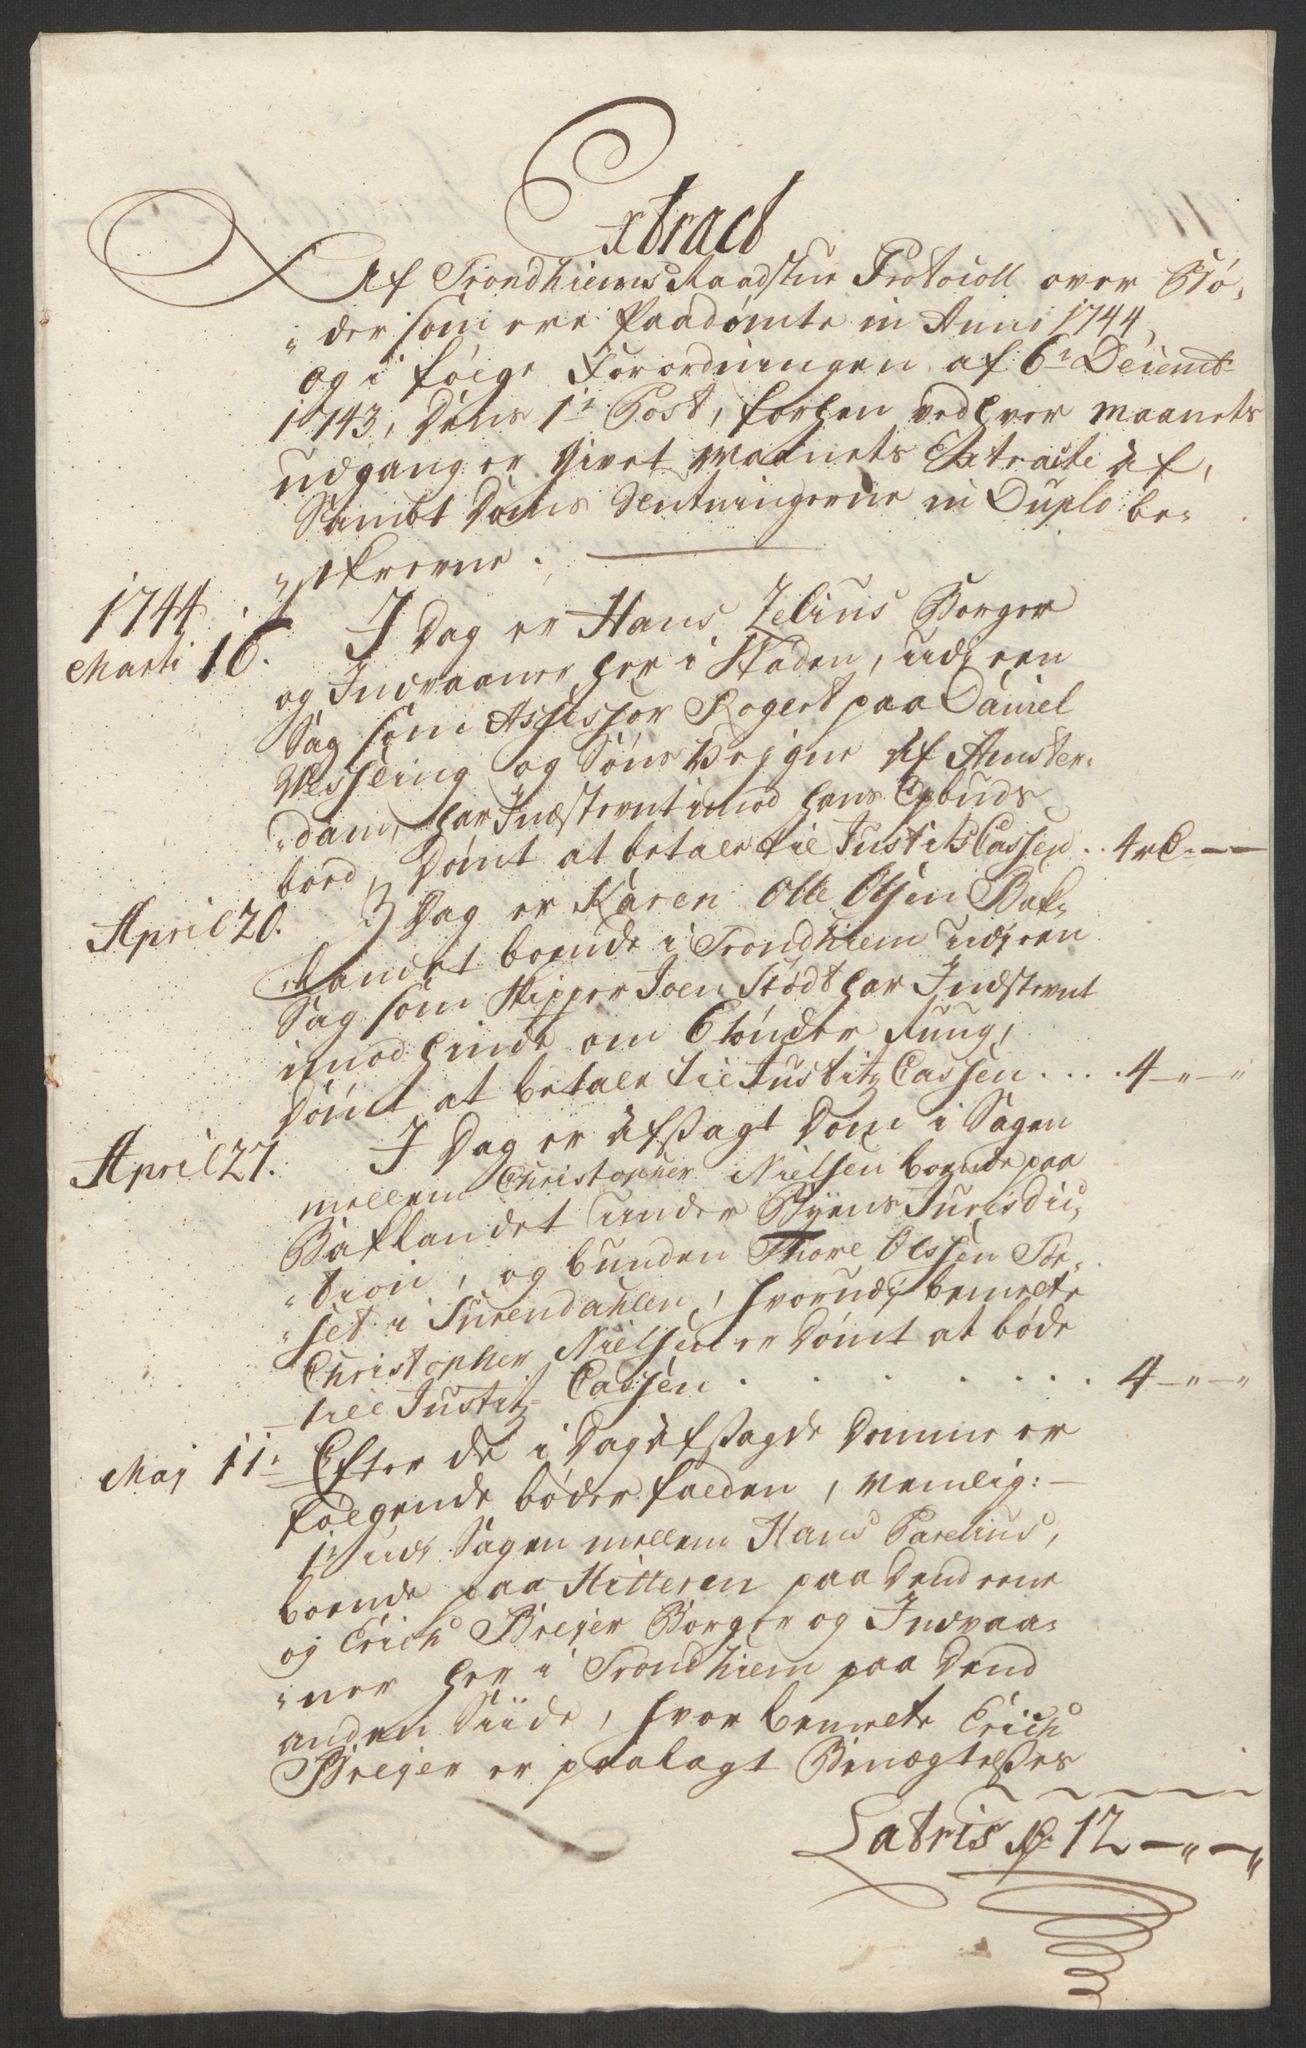 Extract
Af Trondhiems Raadstue Protocoll over Bø-
"der som ere Paadømte in Anno 1744
og i følge Forordningen af 6te Decembr
1743, dens 1te Post, forhen ved hver Maanets
udgang er givet Maanets Extracte af,
Sambt Doms Slutningerne in Duplo be-
"skrevne.
1744
Marti 16. I Dag er Hans Zelius Borger
og Indvaaner her i Staden, udi een
Sag som Assessor Rogert paa Daniel
Wessling og Søns Vegne af Amster-
"dam, har Indstevnt imod hans Opbuds
bord, Dømt at betale til Justits Cassen .. 4 rd - -
April 20. I Dag er Karen Olle Olsen Bak-
"landet boende i Trondhiem udi een
Sag som Skipper Joen Stødt har Indstevnt
imod hende om 6 tønder Rug,
Dømt at betale til Justitz Cassen .... 4 - " - "
April 27. I Dag er afsagt Dom i Sagen
mellem Christopher Nielsen boende paa
Baklandet under Byens Jurisdic-
"tion, og bunden Thore Olssen Tor-
"set i Surendahlen, hvorudi bemelte
Christopher Nielsen er Dømt at bøde
till Justitz Cassen . . . . . . . 4 - " - "
Maj 11te Efter de i Dag afsagde Domme er
følgende bøder falden, nemlig:
1te udi Sagen mellem Hans Parelius,
boende paa Hitteren paa dend eene
og Erich Breyer Borger og Indvaa-
"ner her i Trondhiem paa dend
anden Siide, hvor bemelte Erich
Breyer er paalagt Benægtelses
Latris Rd 12 - " - "